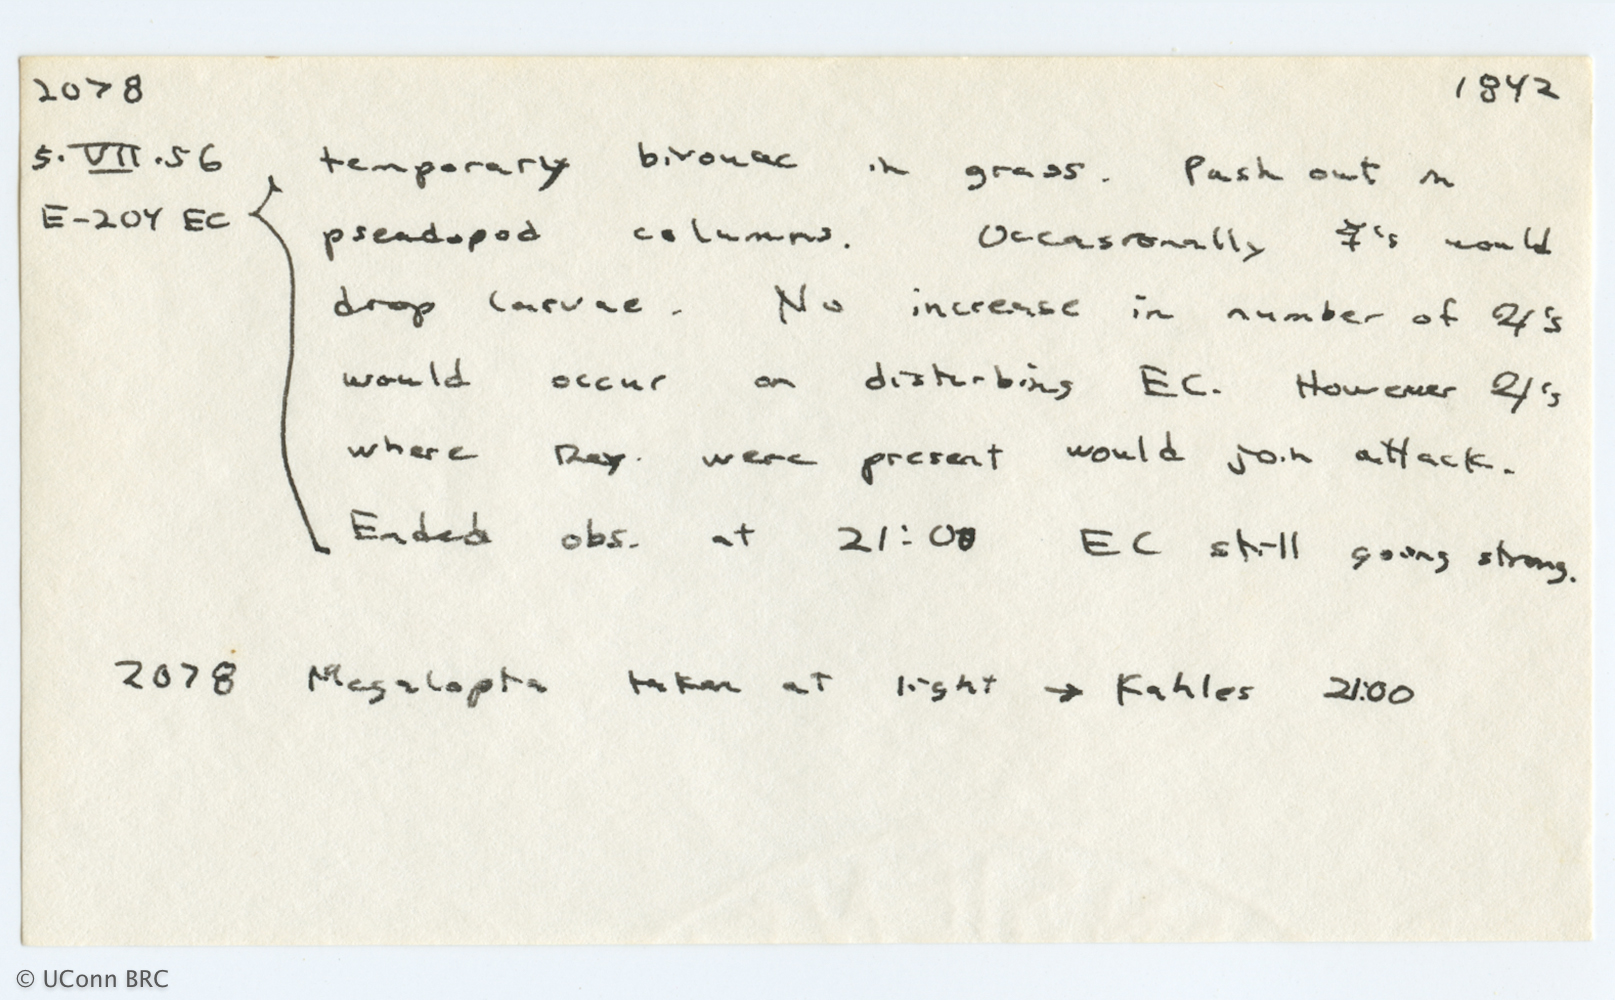 2078 1842
5.VII.56 temporary bivouac in grass. Push out in
E-204 EC pseudopod columns. Occasionally ☿'s would
drop larvae. No increase in number of 2↓'s
would occur on disturbing EC. However 2↓'s
where were present would join attack.
Ended obs. at 21:00 EC still going strong.
2078 Megalopta taken at light → Kahles 21:00
© UConn BRC